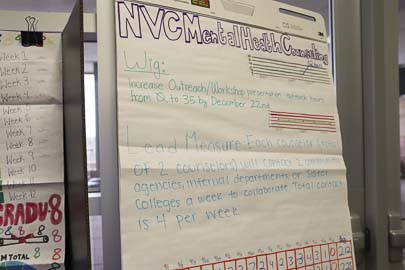 NVC Mental Health Counseling
Wig:
Increase Outreach/Workshop presentation outreach hours
from 12 to 35 by December 22nd
Lead Measure: Each counselor (total
of 2 counselors) will contact 2 community
agencies, internal departments or Sister
Colleges a week to collaborate Total contact
is 4 per week
Week 1
Week 2
Week 3
Week 4
Week 5
Week 6
Week 7
Week 8
Week 9
Week 10
Week 11
Week 12
GRADU8
M TOTAL 8